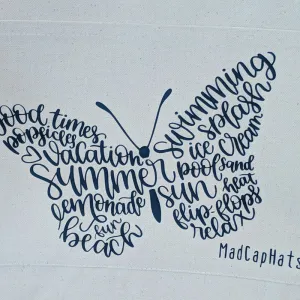 good times
popsicles
vacation
summer
lemonade
fun
beach
swimming
splash
ice cream
pool sand
sun heat
flip-flops
relax
MadCapHats